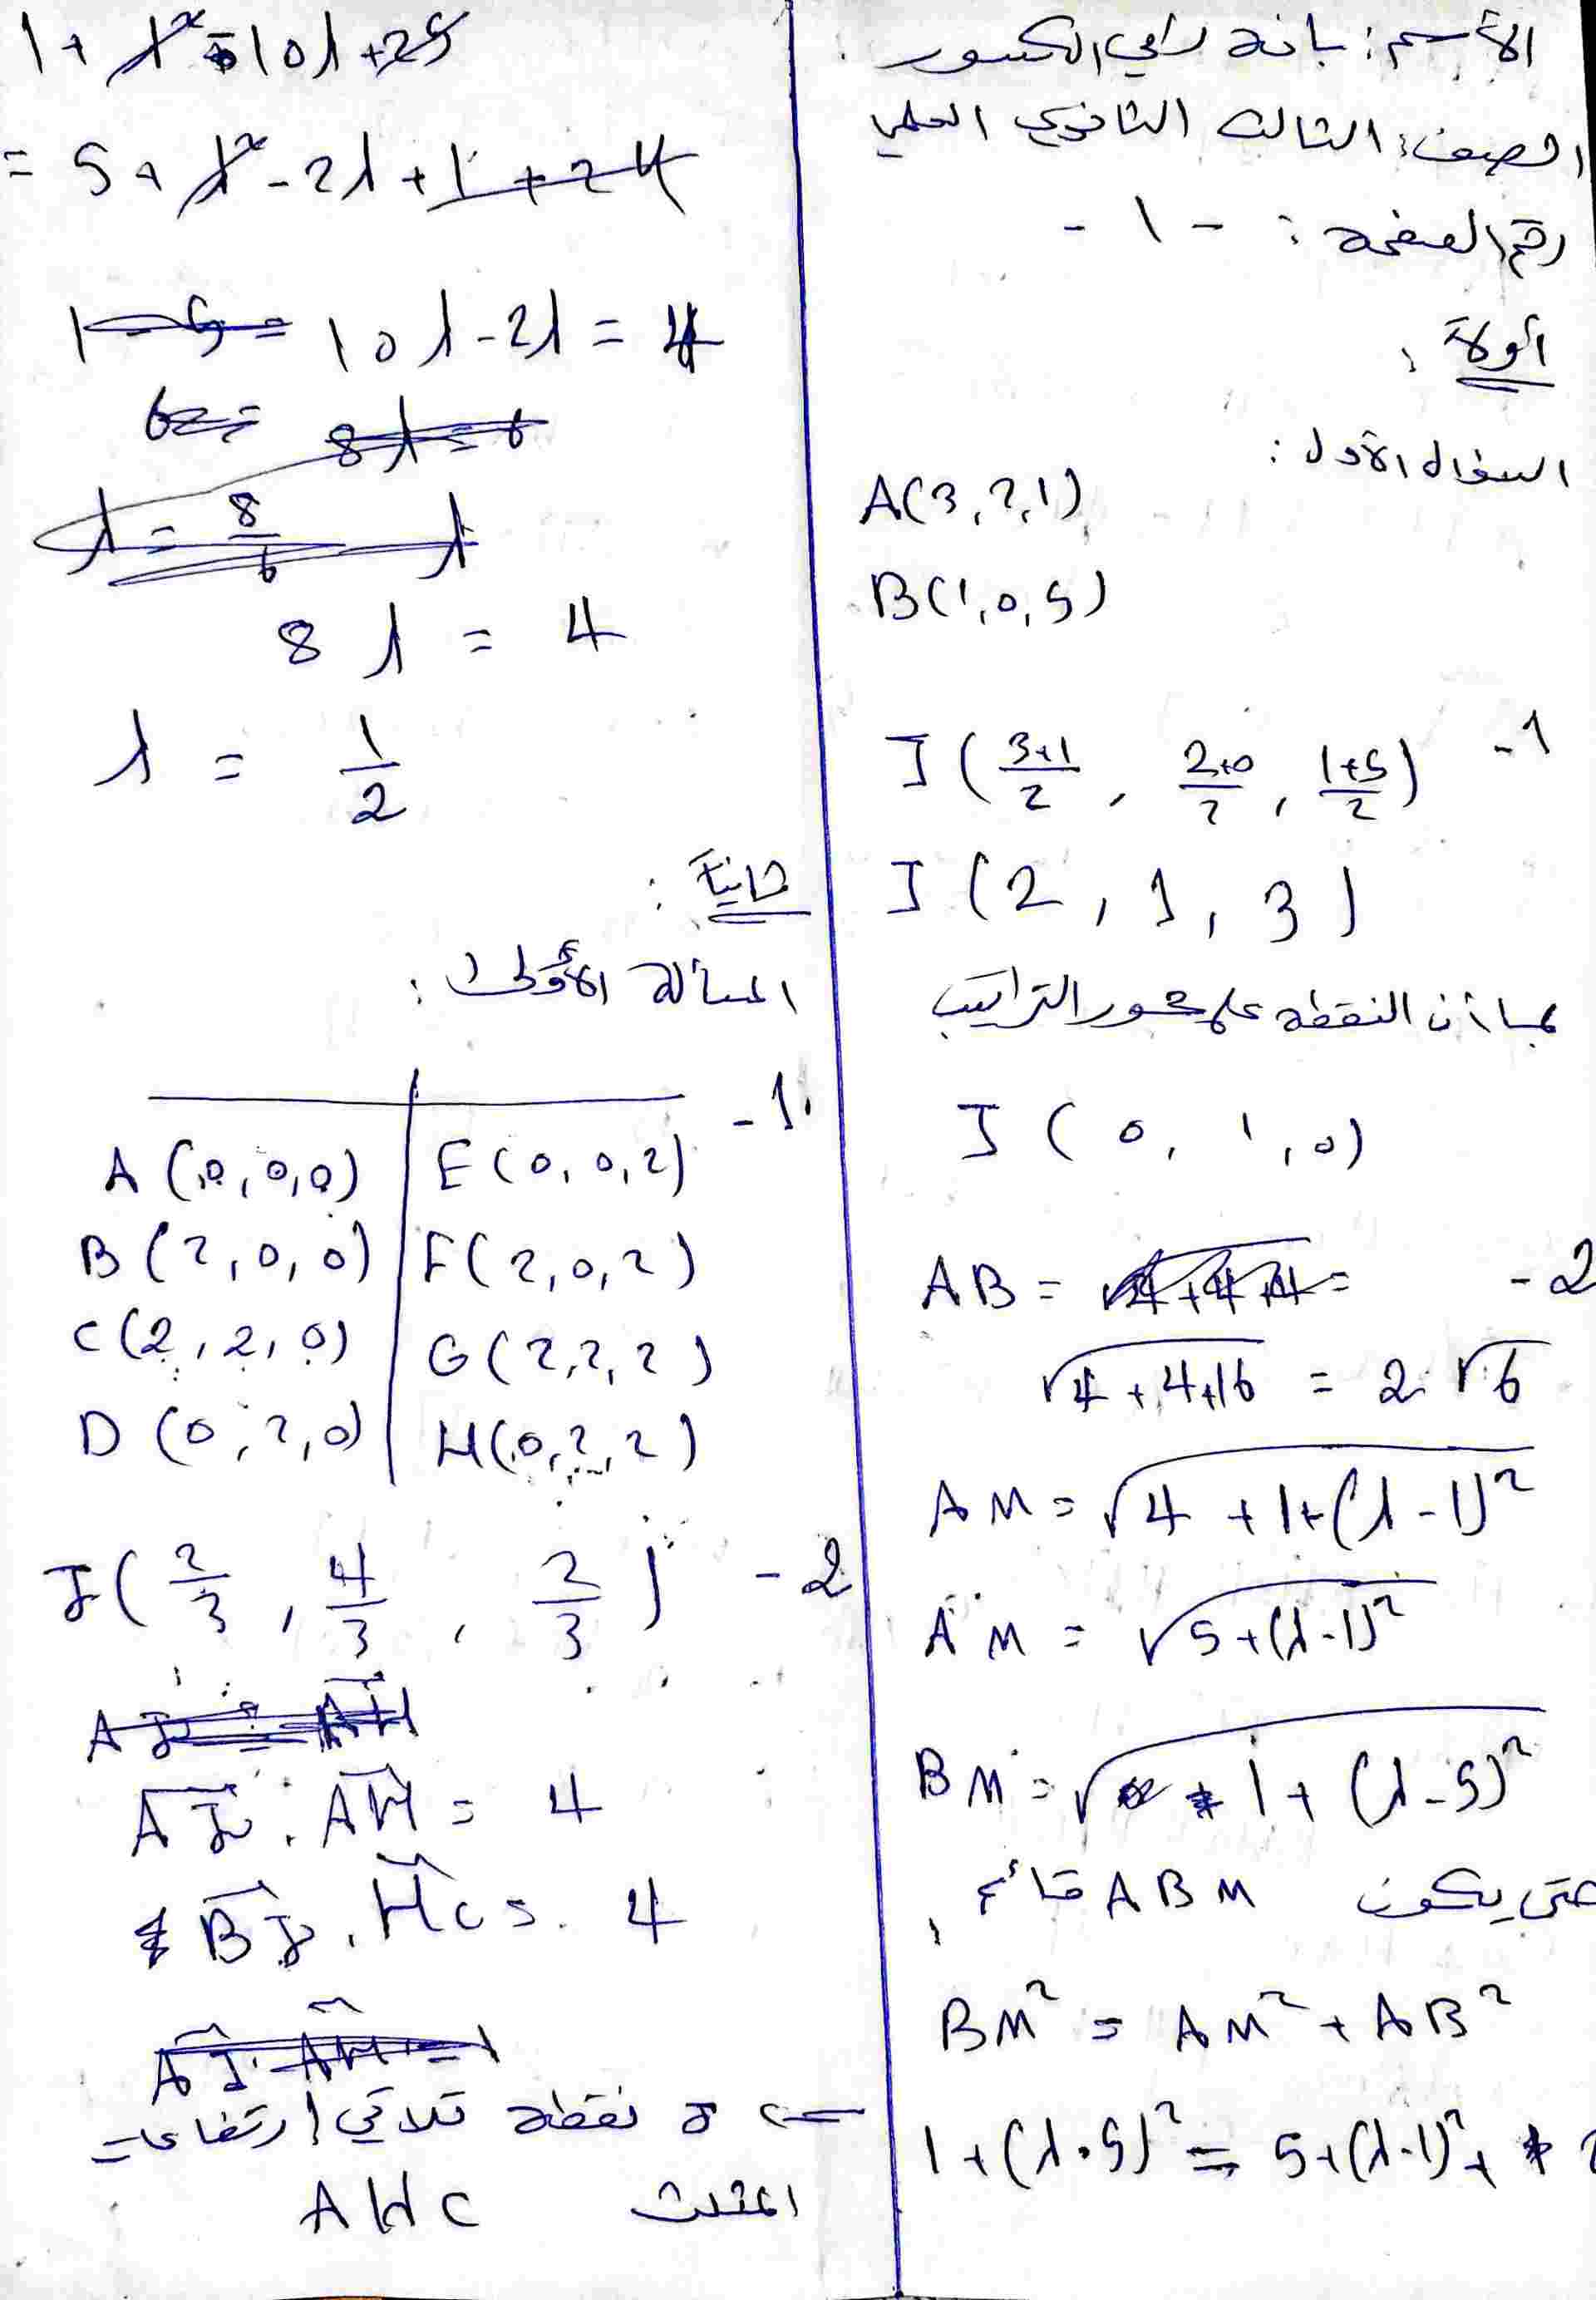 الأسم: بانة رامي الكسور
الصف: الثالث الثانوي العلمي
رقم الصفحة: - ١ -
أولاً:
السؤال الأول:
A(3,2,1)
B(1,0,5)
I(\frac{3+1}{2}, \frac{2+0}{2}, \frac{1+5}{2}) -1
I(2,1,3)
بما أن النقطة على محور التراتيب
J(0,1,0)
AB = -2
√4+4+16 = 2√6
AM = √4+1+(λ-1)²
AM = √5+(λ-1)²
BM = √1+(λ-5)²
حتى يكون ABM قائم
BM² = AM² + AB²
1+(λ-5)² = 5+(λ-1)²+
1+λ²-10λ+25
= 5+λ²-2λ+1+24
10λ-2λ = 4
8λ = 4
λ = \frac{1}{2}
ثانياً:
المسألة الأولى:
-1
A(0,0,0) E(0,0,2)
B(2,0,0) F(2,0,2)
C(2,2,0) G(2,2,2)
D(0,2,0) H(0,2,2)
J(\frac{2}{3}, \frac{4}{3}, \frac{2}{3}) -2
AJ . AH = 4
BJ . HC = 4
<= J نقطة تلاقي ارتفاعات
المثلث AHC